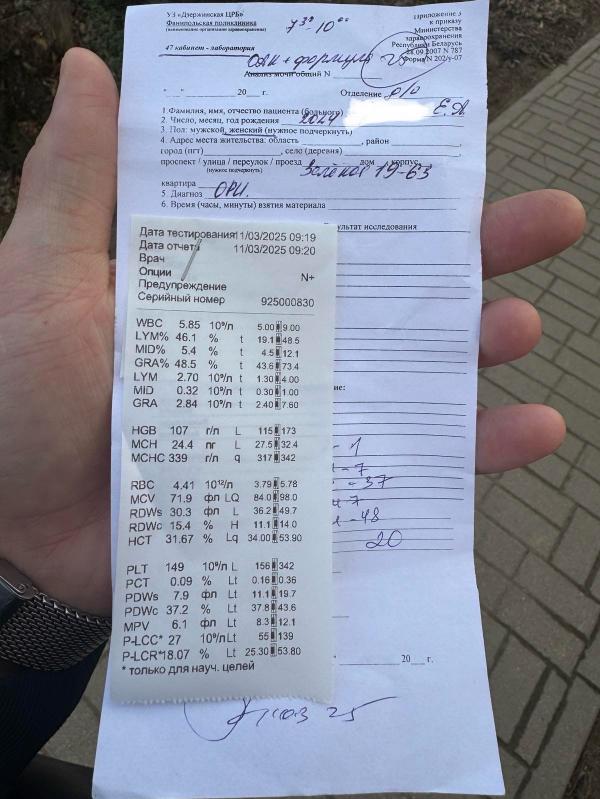 УЗ «Дзержинская ЦРБ»
Фанипольская поликлиника
(наименование организации здравоохранения)
7³⁰ 10⁰⁰
Приложение 3
к приказу
Министерства
здравоохранения
Республики Беларусь
28.09.2007 N 787
Форма N 202/у-07
47 кабинет - лаборатория
ОАК + формула
25
Анализ мочи общий N
"__" ____ 20___ г.
Отделение р/о
1 Фамилия, имя, отчество пациента (больного) Е.А.
2. Число, месяц, год рождения 2024
3. Пол: мужской, женский (нужное подчеркнуть)
4. Адрес места жительства: область ____, район
город (пгт) ____, село (деревня)
проспект / улица / переулок / проезд Зелёная 19-63 дом , корпус
(нужное подчеркнуть)
квартира
5. Диагноз ОРИ.
6. Время (часы, минуты) взятия материала
результат исследования
Дата тестирования 11/03/2025 09:19
Дата отчета 11/03/2025 09:20
Врач
Опции N+
Предупреждение
Серийный номер 925000830
WBC 5.85 10⁹/л 5.00 9.00
LYM% 46.1 % t 19.1 48.5
MID% 5.4 % t 4.5 12.1
GRA% 48.5 % t 43.6 73.4
LYM 2.70 10⁹/л t 1.30 4.00
MID 0.32 10⁹/л t 0.30 1.00
GRA 2.84 10⁹/л t 2.40 7.60
HGB 107 г/л L 115 173
MCH 24.4 пг L 27.5 32.4
MCHC 339 г/л q 317 342
RBC 4.41 10¹²/л 3.79 5.78
MCV 71.9 фл LQ 84.0 98.0
RDWs 30.3 фл L 36.2 49.7
RDWc 15.4 % H 11.1 14.0
HCT 31.67 % Lq 34.00 53.90
PLT 149 10⁹/л L 156 342
PCT 0.09 % Lt 0.16 0.36
PDWs 7.9 фл Lt 11.1 19.7
PDWc 37.2 % Lt 37.8 43.6
MPV 6.1 фл Lt 8.3 12.1
P-LCC* 27 10⁹/л Lt 55 139
P-LCR* 18.07 % Lt 25.30 53.80
* только для науч. целей
ие:
- 1
- 7
- 37
- 7
- 48
20
20___ г.
25